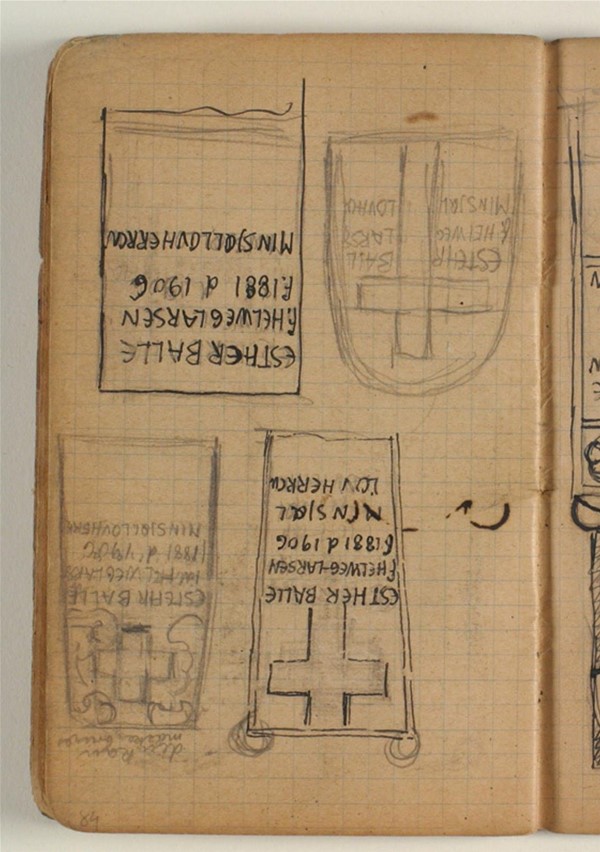 ESTHER BALLE
F. HELWEG-LARSEN
F. 1881 d 1906
MIN SJÆL
LOV HERREN
ESTEHR BALLE
HELWEG LARS
1881 d. 1906
MIN SJÆL LOV HERRE
ESTEHR BALL
F. HELWEG LARS
MIN SJÆL LOV
ESTHER BALLE
F. HELWEG LARSEN
F. 1881 d 1906
MIN SJÆL LOV HERREN
84